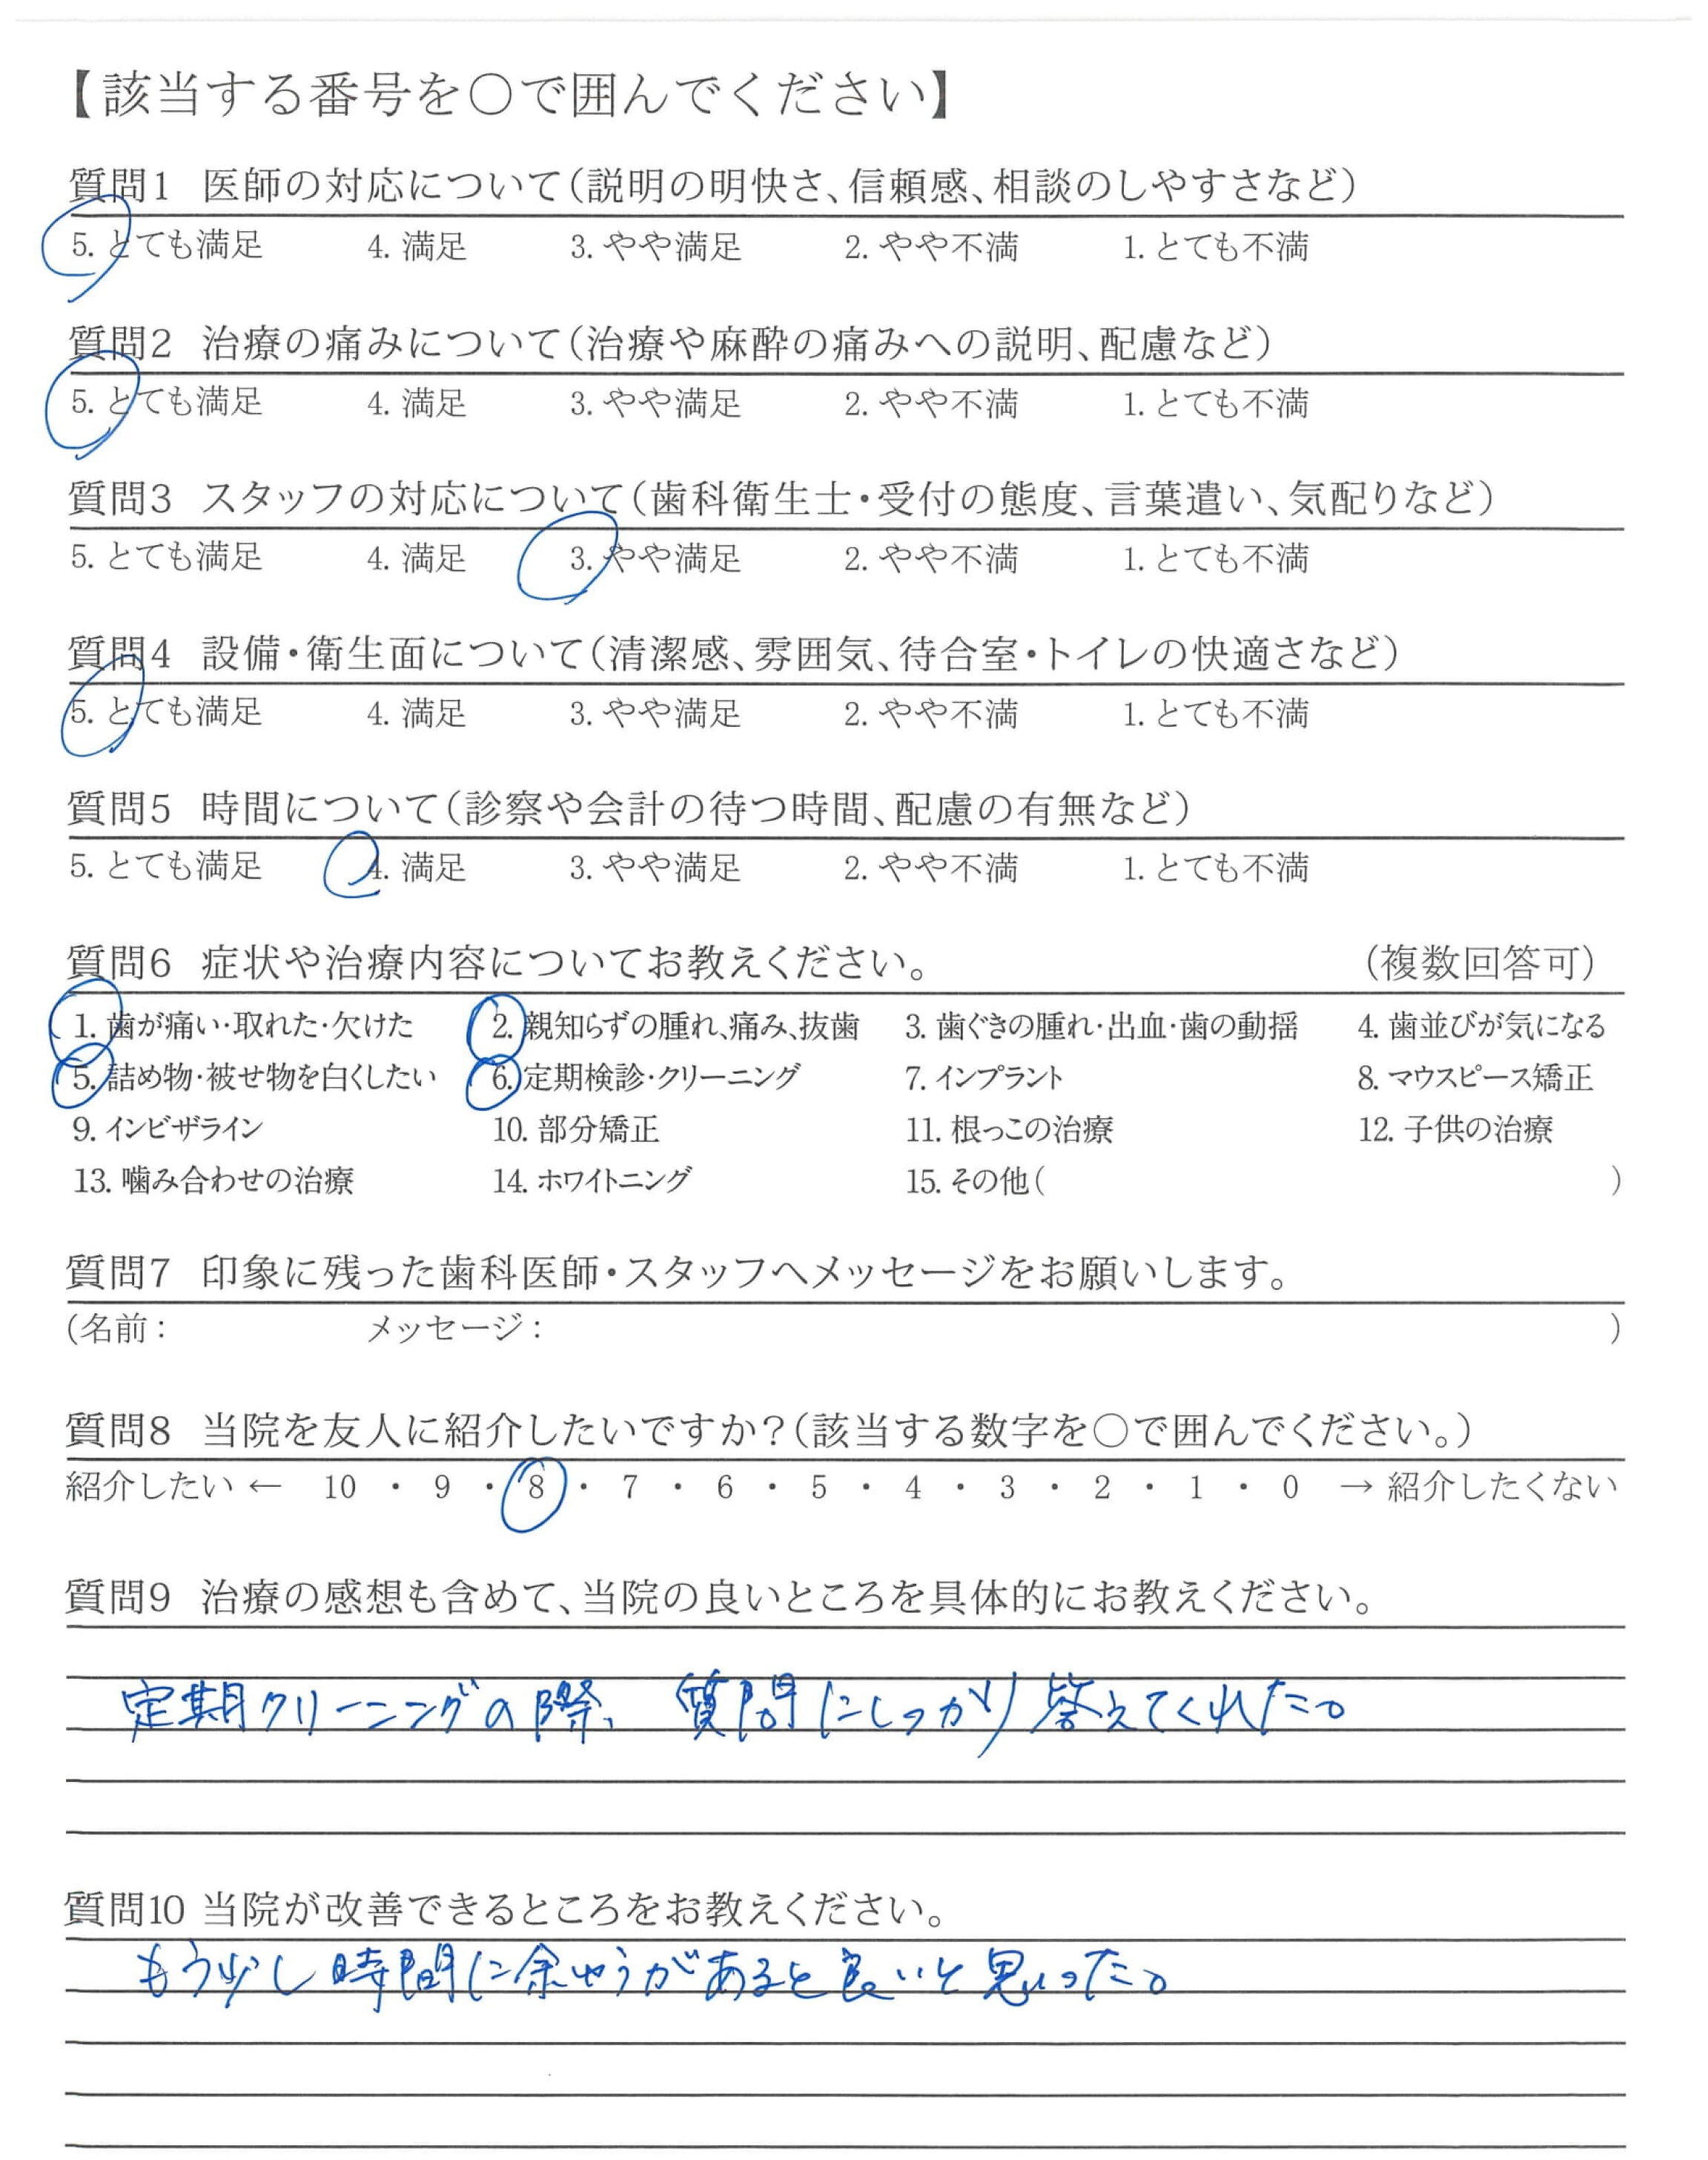 【該当する番号を○で囲んでください】
質問1 医師の対応について（説明の明快さ、信頼感、相談のしやすさなど）
5. とても満足 4. 満足 3. やや満足 2. やや不満 1. とても不満
質問2 治療の痛みについて（治療や麻酔の痛みへの説明、配慮など）
5. とても満足 4. 満足 3. やや満足 2. やや不満 1. とても不満
質問3 スタッフの対応について（歯科衛生士・受付の態度、言葉遣い、気配りなど）
5. とても満足 4. 満足 3. やや満足 2. やや不満 1. とても不満
質問4 設備・衛生面について（清潔感、雰囲気、待合室・トイレの快適さなど）
5. とても満足 4. 満足 3. やや満足 2. やや不満 1. とても不満
質問5 時間について（診察や会計の待つ時間、配慮の有無など）
5. とても満足 4. 満足 3. やや満足 2. やや不満 1. とても不満
質問6 症状や治療内容についてお教えください。 （複数回答可）
1. 歯が痛い・取れた・欠けた 2. 親知らずの腫れ、痛み、抜歯 3. 歯ぐきの腫れ・出血・歯の動揺 4. 歯並びが気になる
5. 詰め物・被せ物を白くしたい 6. 定期検診・クリーニング 7. インプラント 8. マウスピース矯正
9. インビザライン 10. 部分矯正 11. 根っこの治療 12. 子供の治療
13. 噛み合わせの治療 14. ホワイトニング 15. その他（ ）
質問7 印象に残った歯科医師・スタッフへメッセージをお願いします。
（名前： メッセージ： ）
質問8 当院を友人に紹介したいですか？（該当する数字を○で囲んでください。）
紹介したい ← 10 ・ 9 ・ 8 ・ 7 ・ 6 ・ 5 ・ 4 ・ 3 ・ 2 ・ 1 ・ 0 → 紹介したくない
質問9 治療の感想も含めて、当院の良いところを具体的にお教えください。
定期クリーニングの際、質問にしっかり答えてくれた。
質問10 当院が改善できるところをお教えください。
もう少し時間に余ゆうがあると良いと思った。